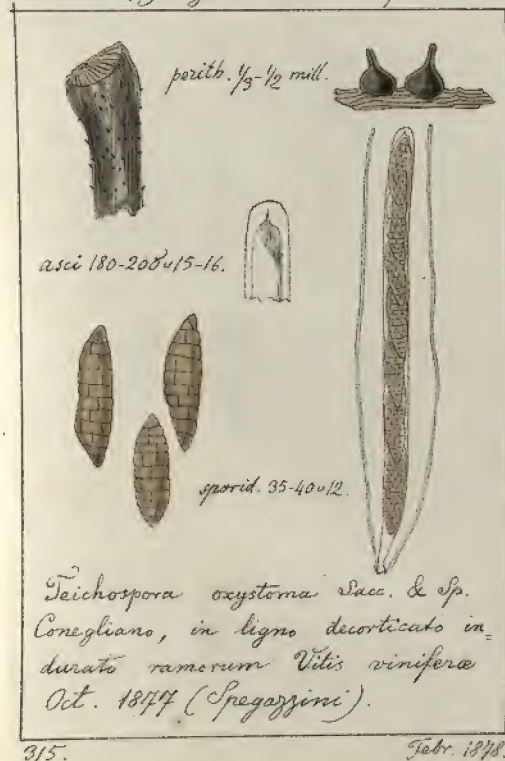 perith. 1/3-1/2 mill.
asci 180-200 υ 15-16.
sporid. 35-40 υ 12.
Teichospora oxystoma Sacc. & Sp.
Conegliano, in ligno decorticato in=
durato ramorum Vitis viniferæ
Oct. 1877 (Spegazzini).
315. Febr. 1878.